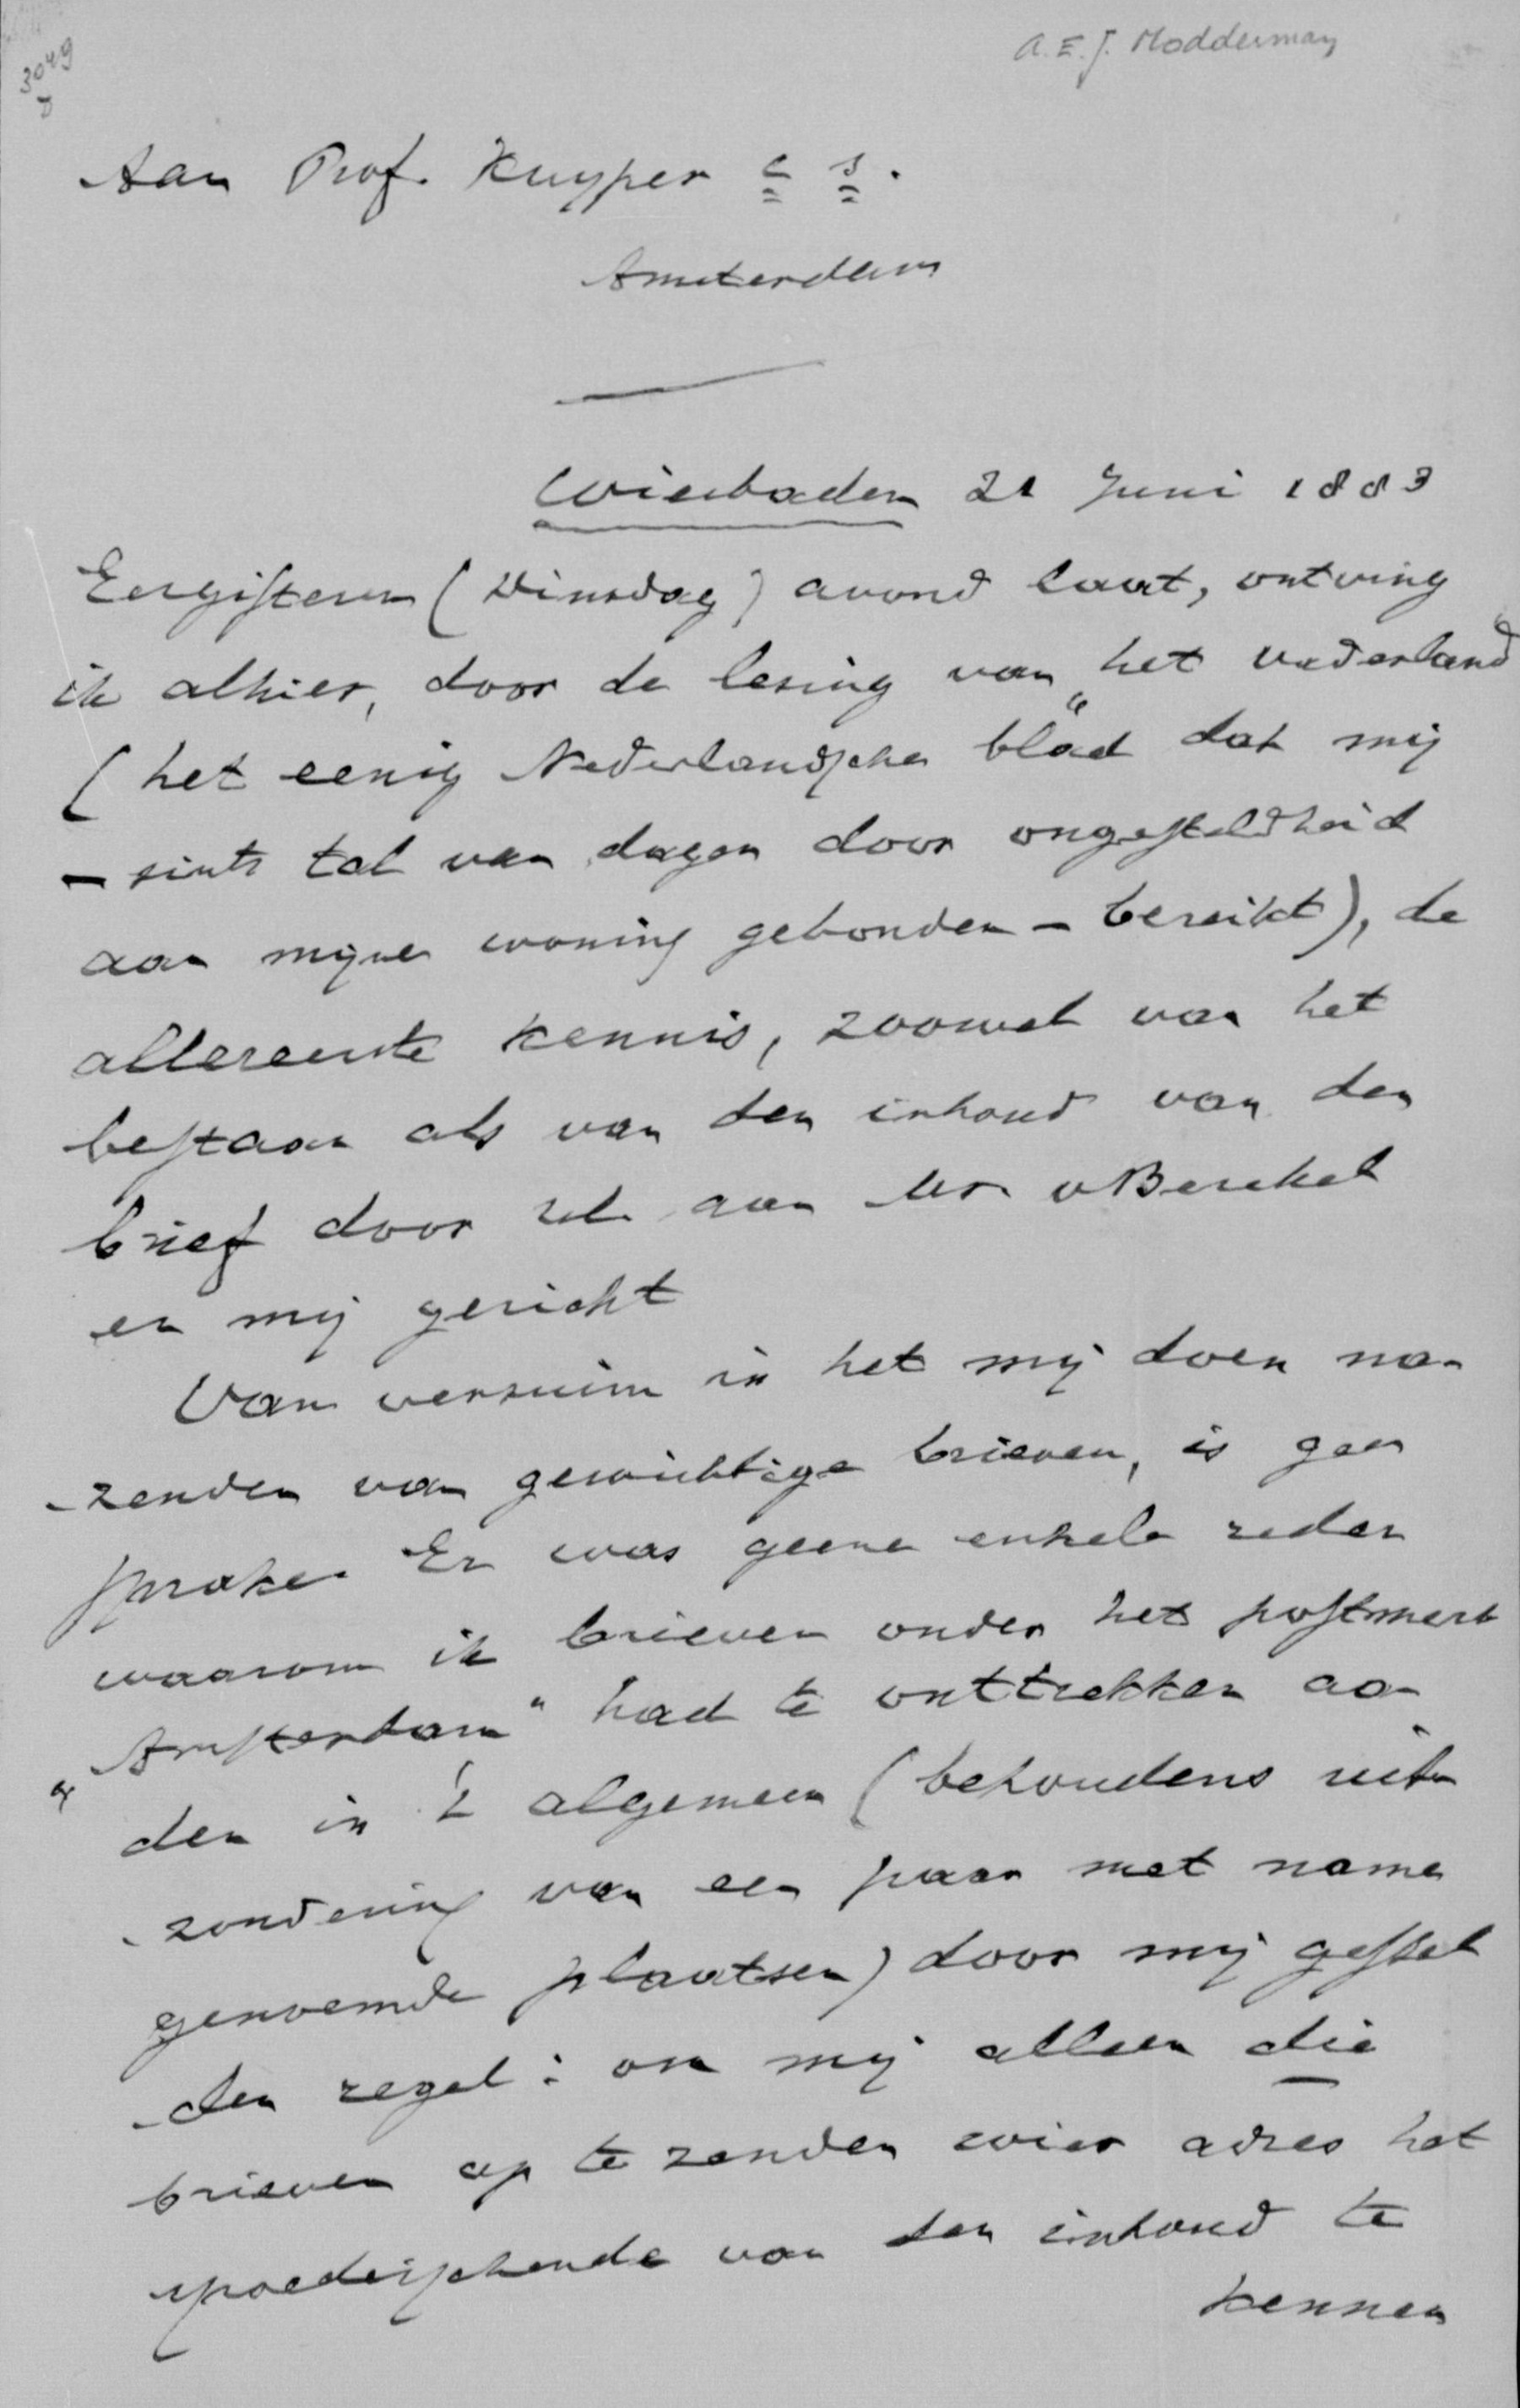 3049
A.E.J. Modderman
Aan Prof. Kuyper c s.
Amsterdam
Wiesbaden 21 Juni 1883
Eergisteren (Dinsdag) avond laat, ontving
ik alhier, door de lezing van „het Vaderland"
(het eenig Nederlandsche blad dat mij
- sints tal van dagen door ongesteldheid
aan mijne woning gebonden - bereikt), de
allereerste kennis, zoowel van het
bestaan als van den inhoud van den
brief door UE. aan Mr. v Berckel
en mij gericht
Van verzuim in het mij doen na-
-zenden van gewichtige brieven, is geen
sprake. Er was geene enkele reden
waarom ik brieven onder het postmerk
„Amsterdam" had te onttrekken aan
den in 't algemeen (behoudens uit-
-zondering van een paar met name
genoemde plaatsen) door mij gestel
-den regel: om mij alleen die
brieven op te zenden wier adres het
spoedeischende van den inhoud te
kennen